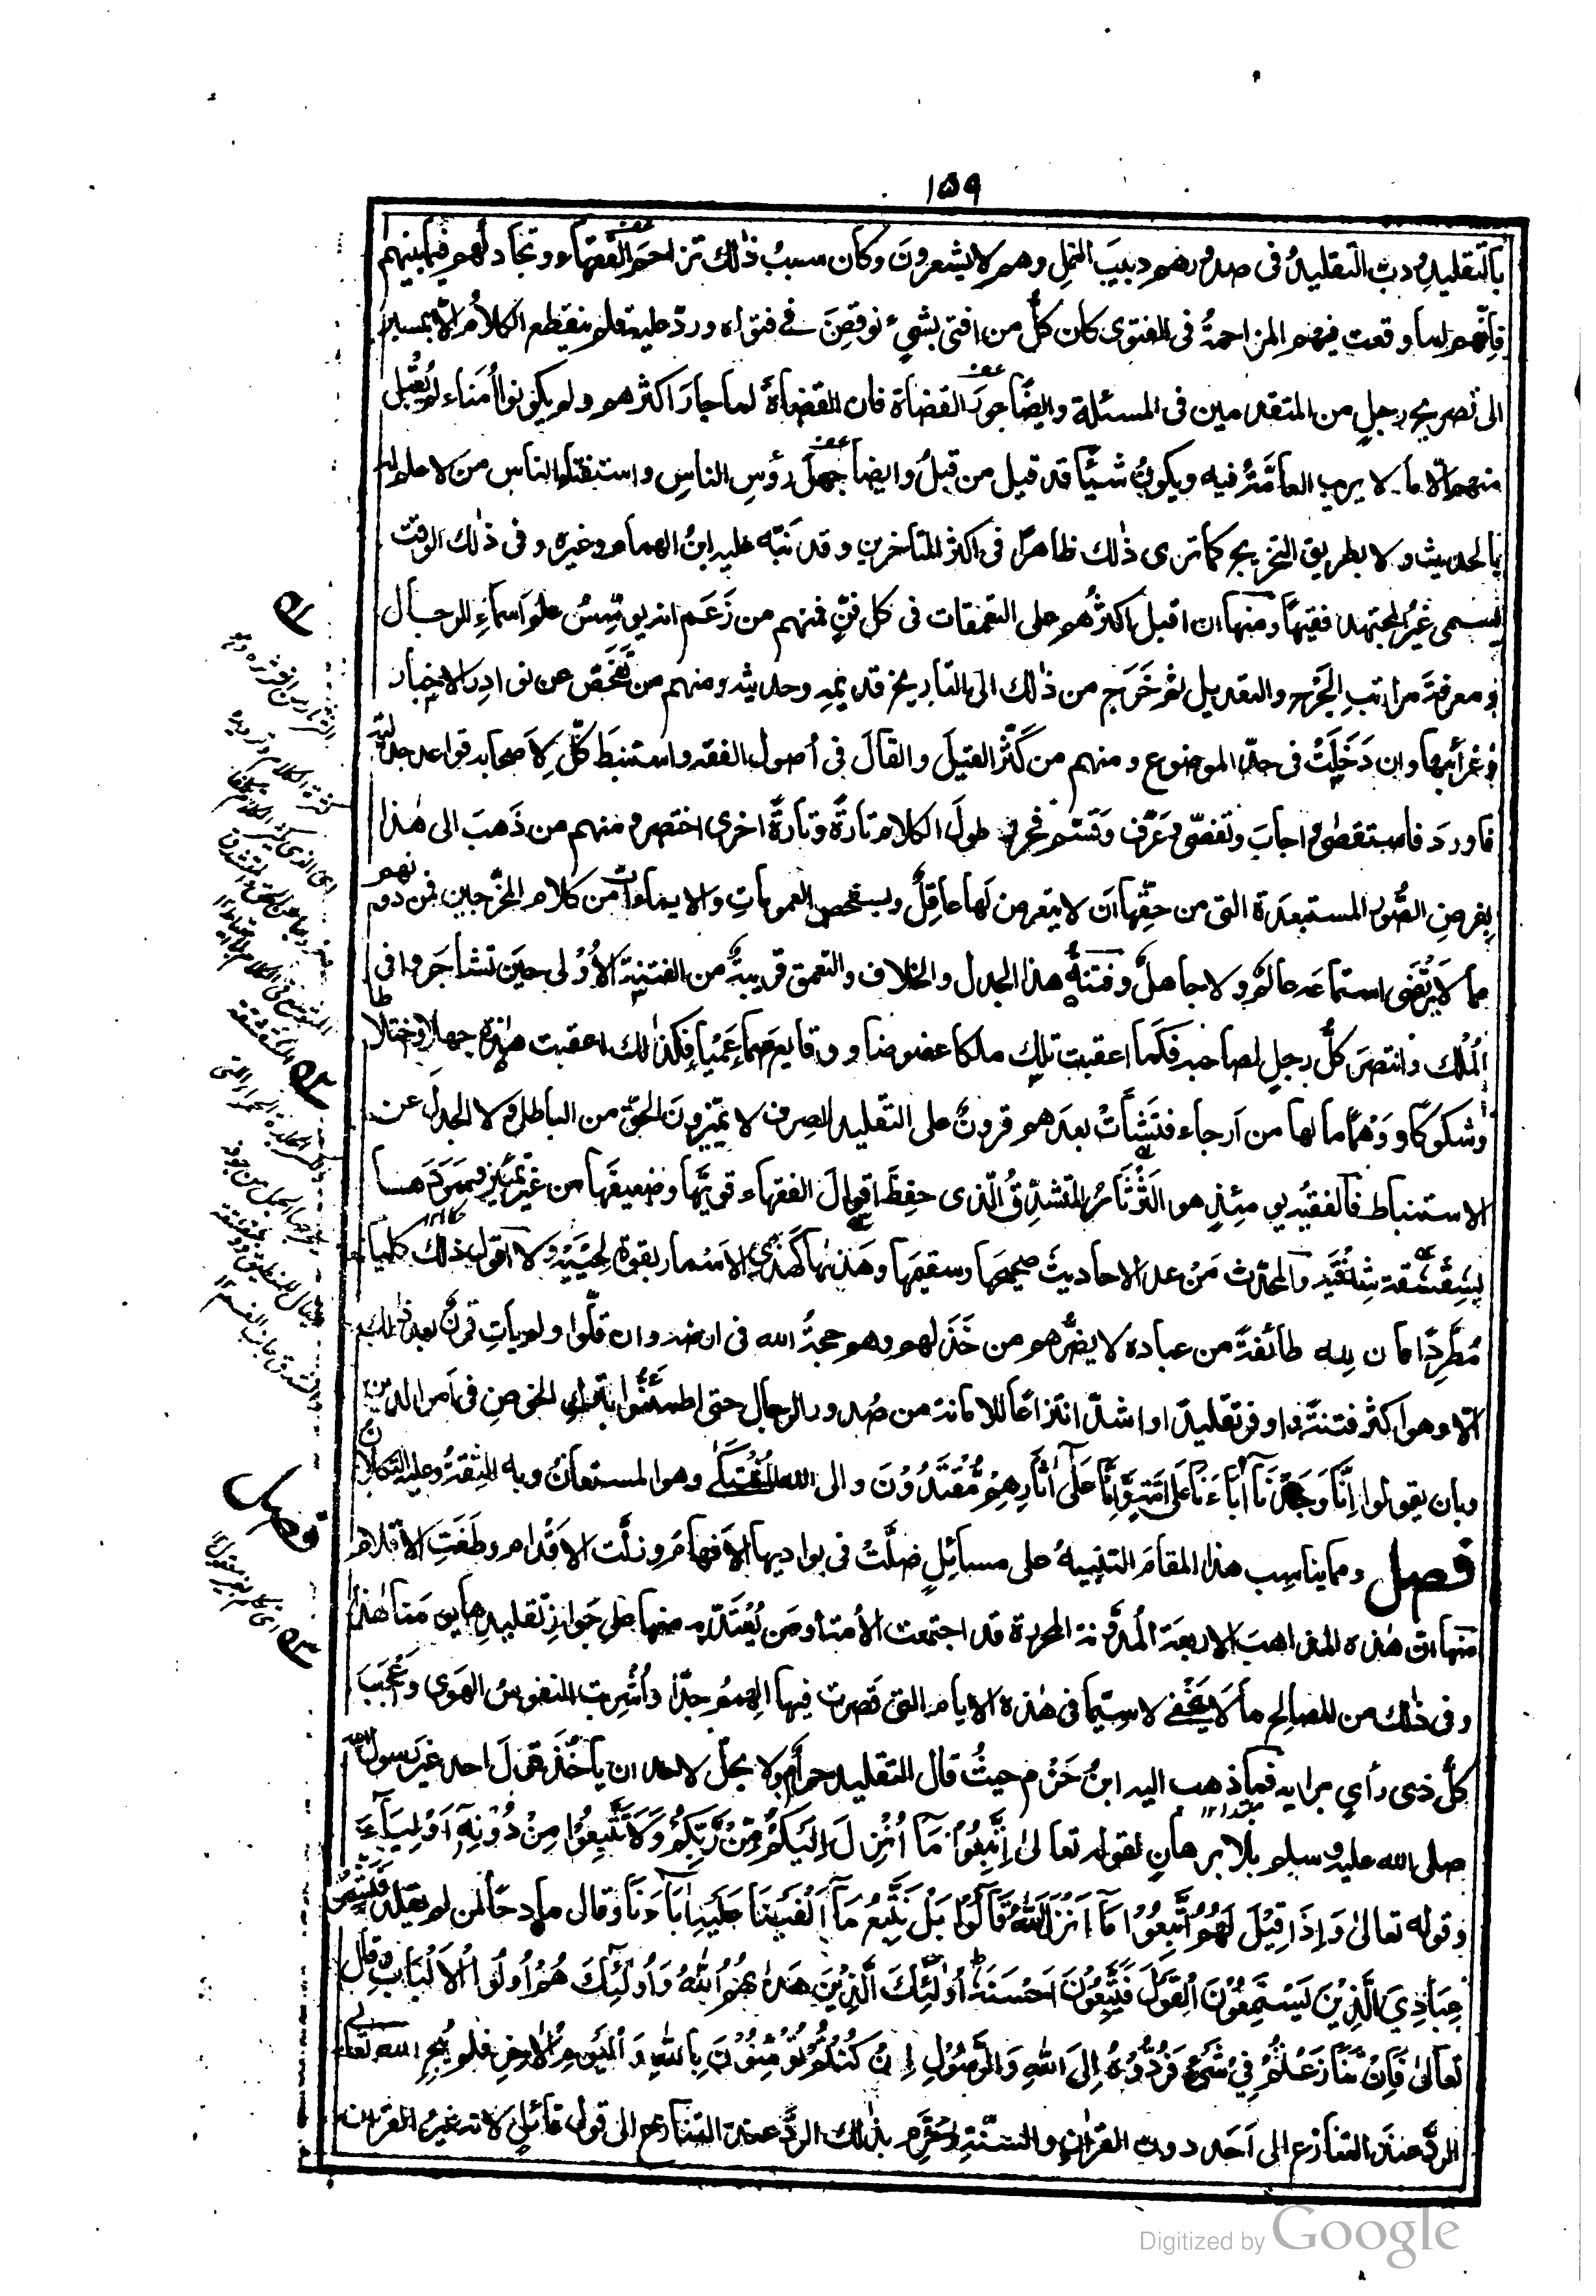 ١٥٩
بالتقليد ودبّ التقليدُ فى صدورهم دبيبَ النمل وهم لا يشعرونَ وكان سببُ ذٰلك تزاحمَ الفقهاء وتجادلَهم فيما بينهم
فانّهم لما وقعت فيهم المزاحمةُ فى الفتوى كان كلُّ من افتى بشئٍ نوقض فى فتواه ورد عليه فلم ينقطع الكلامُ الا بمسير
الى تصريح رجلٍ من المتقدمين فى المسئلة وايضًا جورَ القضاة فان القضاةَ لما جارَ اكثرهم ولم يكونوا اُمَناء لم يُقبل
منهم الّا ما لا يريب العامّةُ فيه ويكونُ شيئًا قد قيل من قبلُ وايضا جهلَ رؤسِ الناسِ واستفتاءَ الناس من لا علم له
بالحديث ولا بطريق التخريج كما ترى ذٰلك ظاهرًا فى اكثر المتأخرين وقد نبّه عليه ابنُ الهمام وغيره وفى ذٰلك الوقت
يسمى غيرُ المجتهد فقيهًا ومنها ان اقبل اكثرُهم على التعمقات فى كل فنٍّ فمنهم من زَعَم انه يؤسِّسُ علمَ اسماءِ الرجال
ومعرفةَ مراتبِ الجَرْحِ والتعديل ثم خَرَج من ذٰلك الى التاريخ قديمِه وحديثه ومنهم من تفحّص عن نوادِر الاخبار
وغرائبها وان دَخَلَتْ فى حدِّ الموضوع ومنهم من كَثَّر القيلَ والقالَ فى اُصول الفقه واستنبطَ كلٌّ لاصحابه قواعد جدليّة
فاورد فاستقصٰى واجابَ وتفصّى وعَرَّف وقسّم فحرر طولَ الكلام تارةً وتارةً اخرى اختصر ومنهم من ذَهبَ الى هٰذا
بفرضِ الصُّور المستبعدة التى من حقِّها ان لا يتعرض لَها عاقلٌ وبتفحص العموماتِ والايماءات من كلام المخرّجين فمن دونهم
مما لا يُرتضى استماعَه عالمٌ ولا جاهلٌ وفتنةُ هذا الجدل والخلاف والتعمق قريبةٌ من الفتنةِ الاُوْلى حينَ تشاجَروا فى
المُلك وانتصرَ كلُّ رجلٍ لصاحبه فكما اعقبت تلك ملكا عضوضا ووقايع صماءَ عَمْياءَ فكذٰلك اعقبت هٰذه جهلا واختلاطا
وشكوكًا ووَهْمًا ما لها من اَرجاء فنَشأَتْ بعدهم قرونٌ على التقليد الصِرف لا يميّزونَ الحقَّ من الباطل ولا الجدل عن
الاستنباط فالفقيهُ يومئذٍ هو الثَرْثَارُ المتشدِّقُ الّذى حفِظَ اقوالَ الفقهاء قويَّها وضعيفَها من غيرِ تمييز وسَرَدَها
بشِقْشقة شِدْقَيه والمحدّث مَنْ عدّ الاحاديثَ صحيحَها وسقيمَها وهَذّها كَهَذِّ الاَسْمار بقوة لِحْيَيْه ولا اقول ذٰلك كلّيا
مُطَّرِدًا فان لله طائفةً من عباده لا يضرُّهم من خَذَلهم وهم حجةُ الله فى ارضه وان قلّوا ولم يأتِ قرنٌ بعد ذٰلك
الّا وهو اكثرُ فتنةً واوفر تقليدًا واشدّ انتزاعًا للامانة من صُدور الرجال حتى اطمئنُّوا بتركِ الخوضِ فى امر الدين
وبان يقولوا اِنَّا وَجَدْنَا آبَاءَنَا عَلٰى اُمَّةٍ وَّاِنَّا عَلٰى اٰثَارِهِمْ مُّقْتَدُوْنَ والى الله المُشْتكٰى وهو المستعانُ وبه الثِقةُ وعليه التكلانُ
فصل ومما يناسِب هذا المقامَ التنبيهُ على مسائِلٍ ضلَّتْ فى بواديها الاَفهامُ وزلَّت الاَقْدام وطَغَتِ الاقلام
منها ان هٰذه المذاهبَ الاربعة المُدوّنة المحررة قد اجتمعت الاُمة او من يُعْتَدّ به منها على جَوازِ تقليدِها الى يومنا هٰذا
وفى ذٰلك من المصالح ما لَا يَخْفٰى لا سيّما فى هٰذه الايام التى قَصرت فيها الهِممُ جدّا واُشْرِبت النفوسُ الهَوى واُعْجَبَ
كلُّ ذى رأىٍ برايه فما ذهب اليه ابنُ حَزْم حيثُ قال التقليد حرامٌ ولا يحلّ لاحد ان يأخُذَ قولَ احد غيرَ رسول الله
صلى الله عليه وسلم بلا برهانٍ لقوله تعالىٰ اِتَّبِعُوْا مَآ اُنْزِلَ اِلَيْكُمْ مِّنْ رَّبِّكُمْ وَلَا تَتَّبِعُوْا مِنْ دُوْنِهٖ اَوْلِيَآءَ
وقوله تعالىٰ وَاِذَا قِيْلَ لَهُمُ اتَّبِعُوْا مَآ اَنْزَلَ اللّٰهُ قَالُوْا بَلْ نَتَّبِعُ مَآ اَلْفَيْنَا عَلَيْهِ اٰبَآءَنَا وقال مادحًا لمن لم يقلد فَبَشِّرْ
عِبَادِيَ الَّذِيْنَ يَسْتَمِعُوْنَ الْقَوْلَ فَيَتَّبِعُوْنَ اَحْسَنَهٗ اُولٰئِكَ الَّذِيْنَ هَدٰىهُمُ اللّٰهُ وَاُولٰئِكَ هُمْ اُولُوا الْاَلْبَابِ وقال
تعالىٰ فَاِنْ تَنَازَعْتُمْ فِيْ شَيْءٍ فَرُدُّوْهُ اِلَى اللّٰهِ وَالرَّسُوْلِ اِنْ كُنْتُمْ تُؤْمِنُوْنَ بِاللّٰهِ وَالْيَوْمِ الْاٰخِرِ فلم يُبِحِ الله تعالى
الردَّ عندَ التنازع الى اَحَد دون القراٰنِ والسنّةِ وحَرَّم بذٰلك الردَّ عند التنازع الى قول قائل لانه غيرُ القرآن
Digitized by Google